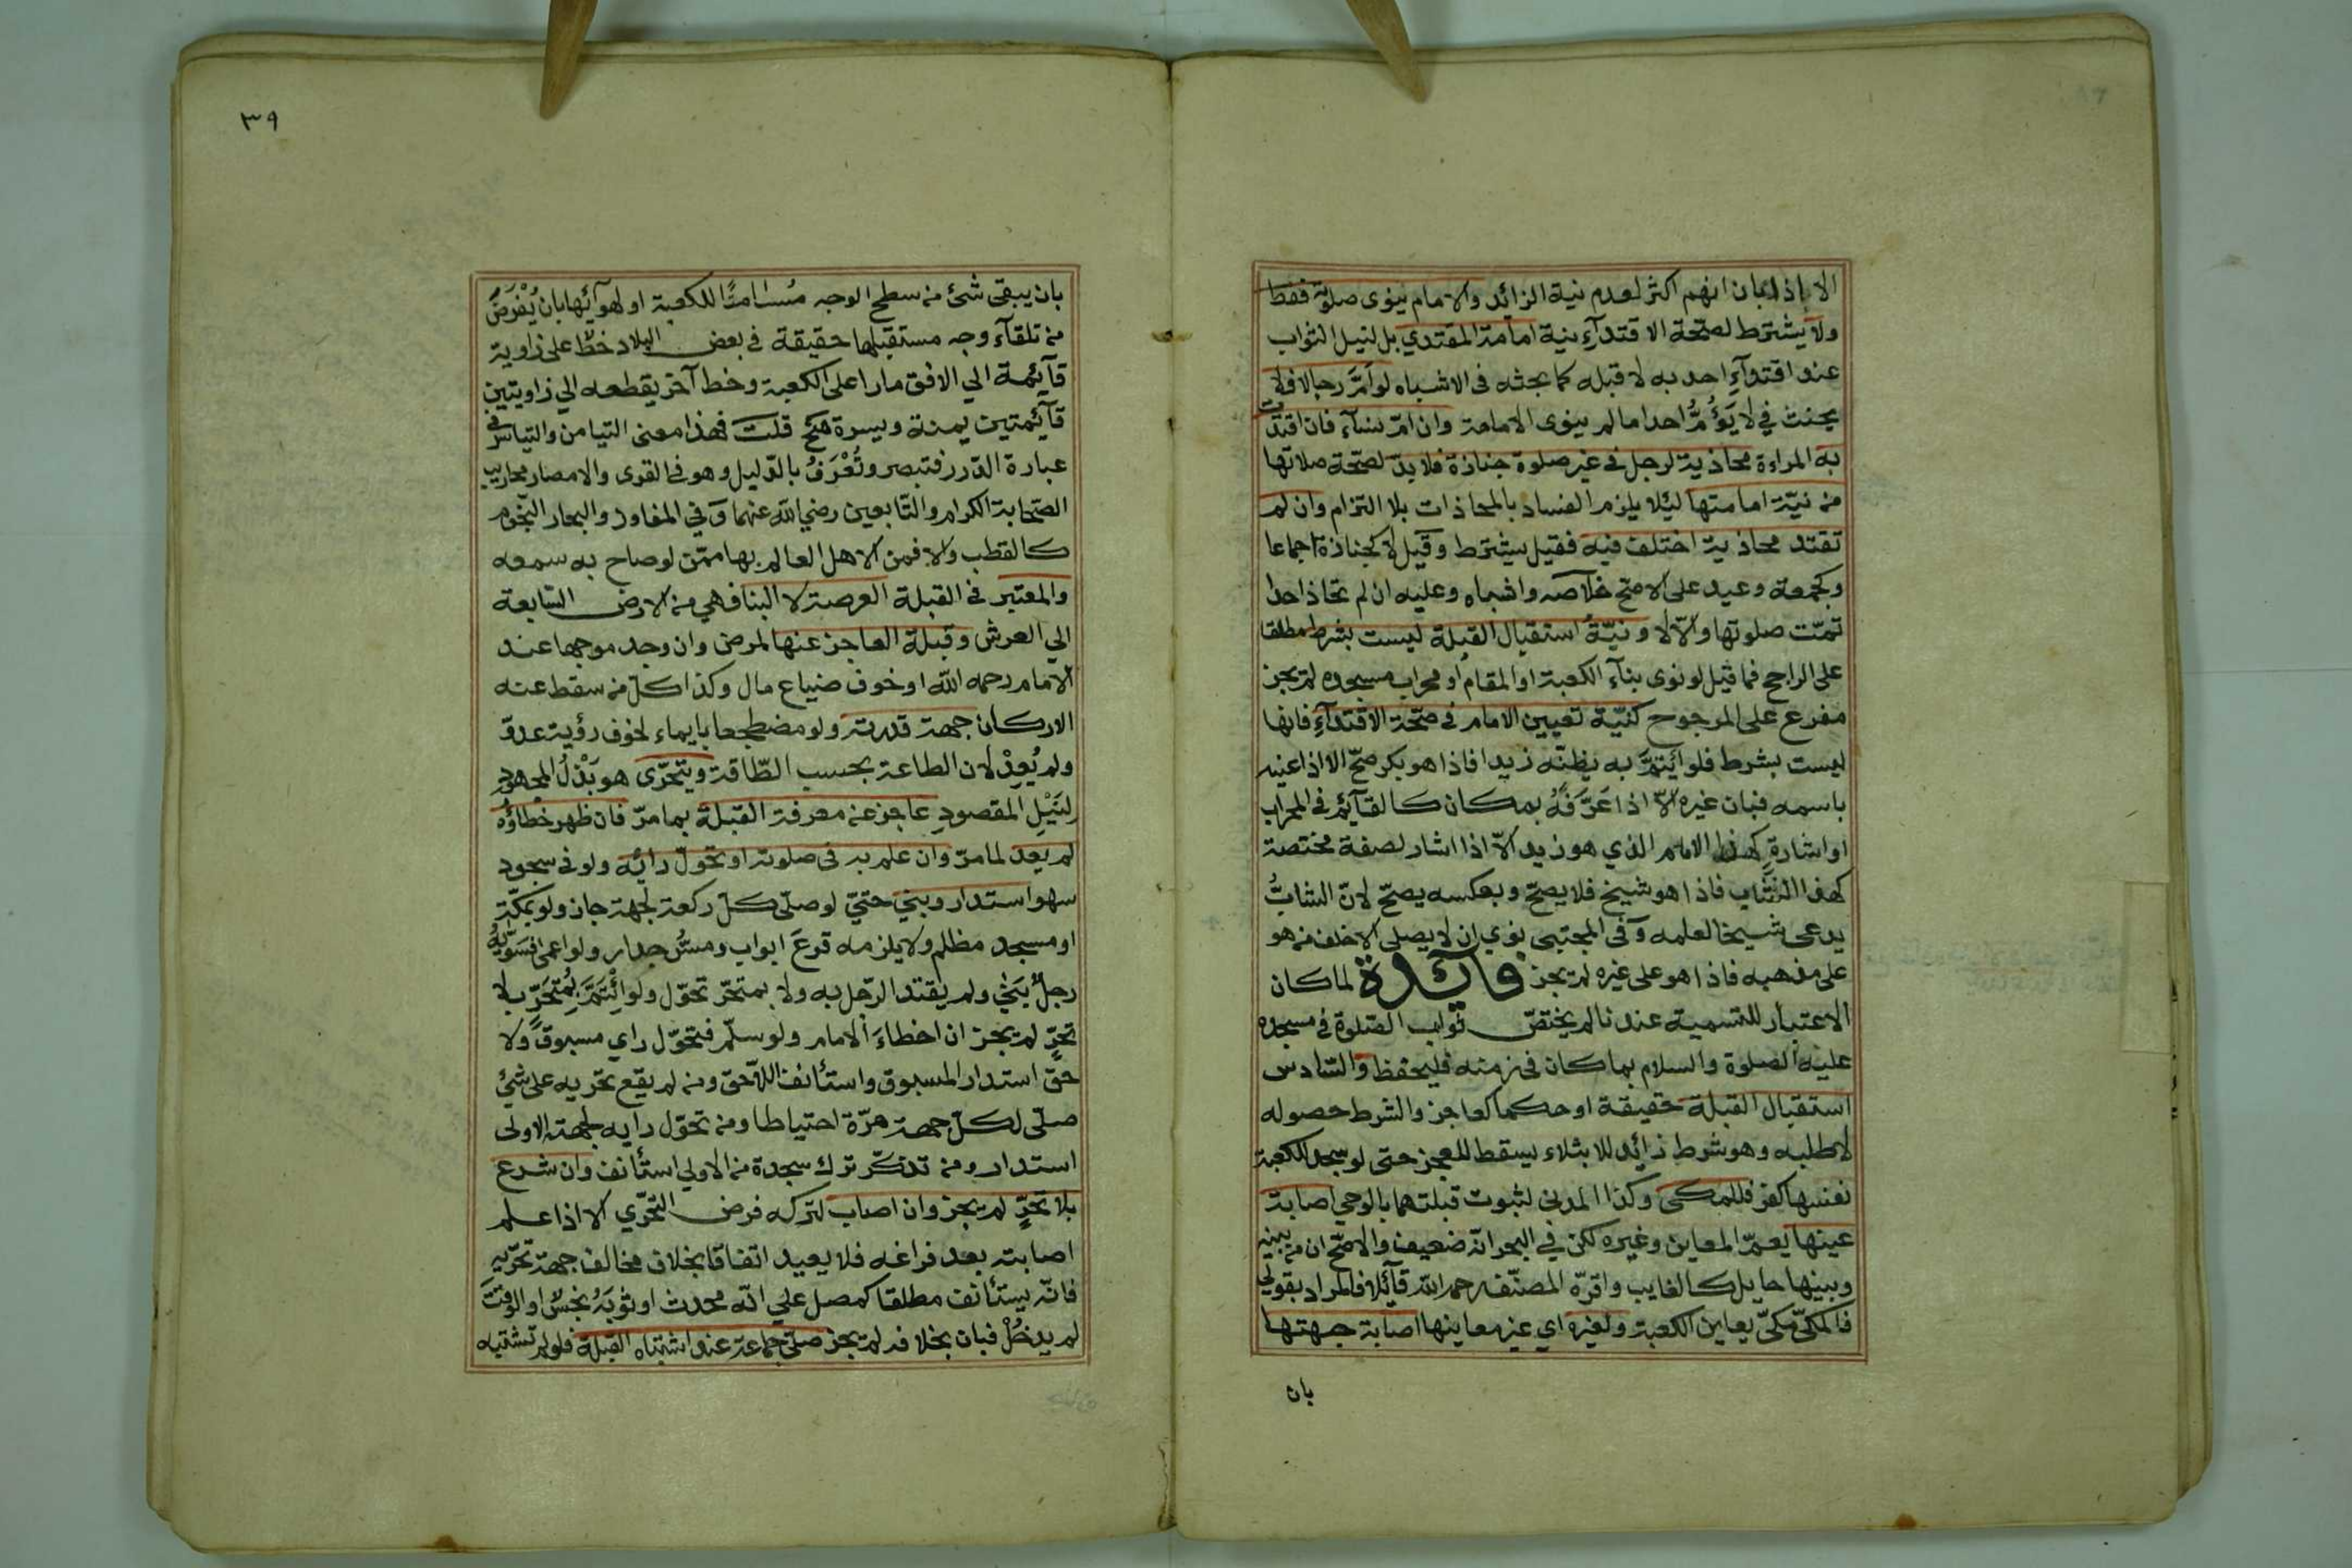 الا اذا بان انهم اكثر لعدم نية الزائد والامام ينوى صلوته فقط
ولا يشترط لصحة الاقتدآء نية امامة المقتدي بل لنيل الثواب
عند اقتدآء احد به لا قبله كما بحثه فى الاشباه لو أمّ رجالا فلا
يحنث في لا يَؤُمُّ احدا ما لم ينوى الامامة وان امّ نسآء فان اقتدت
به المراءة محاذية لرجل فى غير صلوة جنازة فلا بدّ لصحة صلاتها
من نيّة امامتها ليئلا يلزم الفساد بالمحاذات بلا التزام وان لم
تقتد محاذية اختلف فيه فقيل يشترط وقيل لا كجنازة اجماعا
وكجمعة وعيد على الاصح خلاصه واشباه وعليه ان لم تحاذ احدا
تمّت صلوتها والّا لا ونيّة استقبال القبلة ليست بشرط مطلقا
على الراجح فما قيل لو نوى بنآء الكعبة او المقام او محراب مسجده لم يجز
مفرع على المرجوح كنيّة تعيين الامام فى صحّة الاقتدآء فانها
ليست بشرط فلو ايتمّ به يظنّه زيدا فاذا هو بكر صحّ الا اذا عينه
باسمه فبان غيره الّا اذا عَرَّفَهُ بمكان كالقآئم فى المحراب
او اشارة كهذا الامام الذي هو زيد الّا اذا اشار لصفة مختصة
كهذا الشاب فاذا هو شيخ فلا يصحّ وبعكسه يصحّ لانّ الشابُّ
يدعى شيخا لعلمه وَفى المجتبى نوي ان لا يصلى الا خلف من هو
على مذهبه فاذا هو على غيره لم يجز فائدة لما كان
الاعتبار للتسمية عندنا لم يختصّ ثواب الصّلوة فى مسجده
عليه الصلوة والسلام بما كان فى زمنه فليحفظ والسّادس
استقبال القبلة حقيقة او حكما كعاجز والشرط حصوله
لا طلبه وهو شرط زائد للابتلاء يسقط للعجز حتى لو سجد للكعبة
نفسها كفر فللمكى وكذا المدنى لثبوت قبلتهما بالوحي اصابة
عينها يعمّ المعاين وغيره لكن في البحر انّه ضعيف والاصحّ ان من بينه
وبينها حايل كالغايب واقرّه المصنّف رحمه الله قآئلا فالمراد بقولي
فالمكّى مكّيّ يعاين الكعبة ولغيره اي غير معاينها اصابة جهتها
بان
٣٩
بان يبقى شئ من سطح الوجه مُسامتًا للكعبة او لهوآئها بان يُفْرَضَ
من تلقآء وجه مستقبلها حقيقة فى بعض البلاد خطّ على زاوية
قآئمة الي الافق مارا على الكعبة وخط آخر يقطعه الي زاويتين
قآئمتين يمنة ويسرة منح قلت فهذا معنى التيامن والتياسر فى
عبارة الدّرر فتبصر وتُعْرَفُ بالدّليل وهو فى القرى والامصار محاريب
الصّحابة الكرام والتّابعين رضي الله عنهما وَفي المفاوز والبحار النّجوم
كالقطب والا فمن الاهل العالم بها ممّن لو صاح به سمعه
والمعتبر فى القبلة العرصة لا البنا فهي من الارض السّابعة
الي العرش وقبلة العاجز عنها لمرض وان وجد موجها عند
الامام رحمه الله او خوف ضياع مال وكذا كلّ من سقط عنه
الاركان جهة قدرته ولو مضطجعا بايماء لخوف رؤية عدوّ
ولم يُعِدْ لأن الطاعة بحسب الطّاقة ويتحرّى هو بَذْلُ المجهود
لِنَيْلِ المقصودِ عاجز عن معرفة القبلة بما مرّ فان ظهر خطاؤه
لم يعد لما مرّ وان علم به فى صلوته او تحوّل رائيه ولو فى سجود
سهو استدار وبنى حتيّ لو صلّى كلّ ركعة لجهة جاز ولو بمكّة
او مسجد مظلم ولا يلزمه قرعَ ابواب ومسّ جدار ولو اعمى فسوّاه
رجلٌ بَنىٰ ولم يقتد الرّجل به ولا بمتحرّ تحوّل ولو ائْتَمَّ بمُتحَرٍّ بلا
تحرٍّ لم يجز ان اخطاءَ الامام ولو سلّم فتحوّل راي مسبوق ولا
حقّ استدار المسبوق واستأنف اللّاحق ومن لم يقع تحريه على شئ
صلّى لكلّ جهة مرّة احتياطا ومن تحوّل رايه لجهة الاولى
استدار ومن تذكّر ترك سجدة من الاولي استأنف وان شرع
بلا تحرّ لم يجز وان اصاب لتركه فرض التحّري الا اذا علم
اصابته بعد فراغه فلا يعيد اتفاقا بخلاف مخالف جهة تحرّيه
فانّه يستأنف مطلقا كمصل على انّه محدث او ثوبَهُ نجسٌ او الوقتَ
لم يدخُلْ فبان بخلافه لم يجز صلّى جماعة عند اشتباه القبلة فلو لم تشتبه